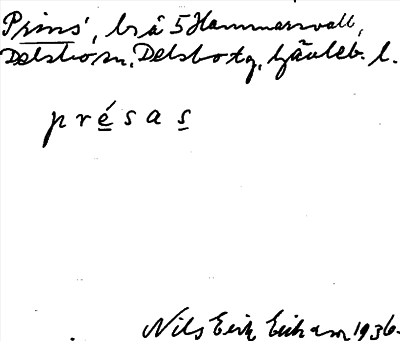 Prins, by å 5 Hammarvall,
Delsbo sn, Delsbo tg, Gävleb. l.
p r é s a s
Nils Erik Eriksson 1936.